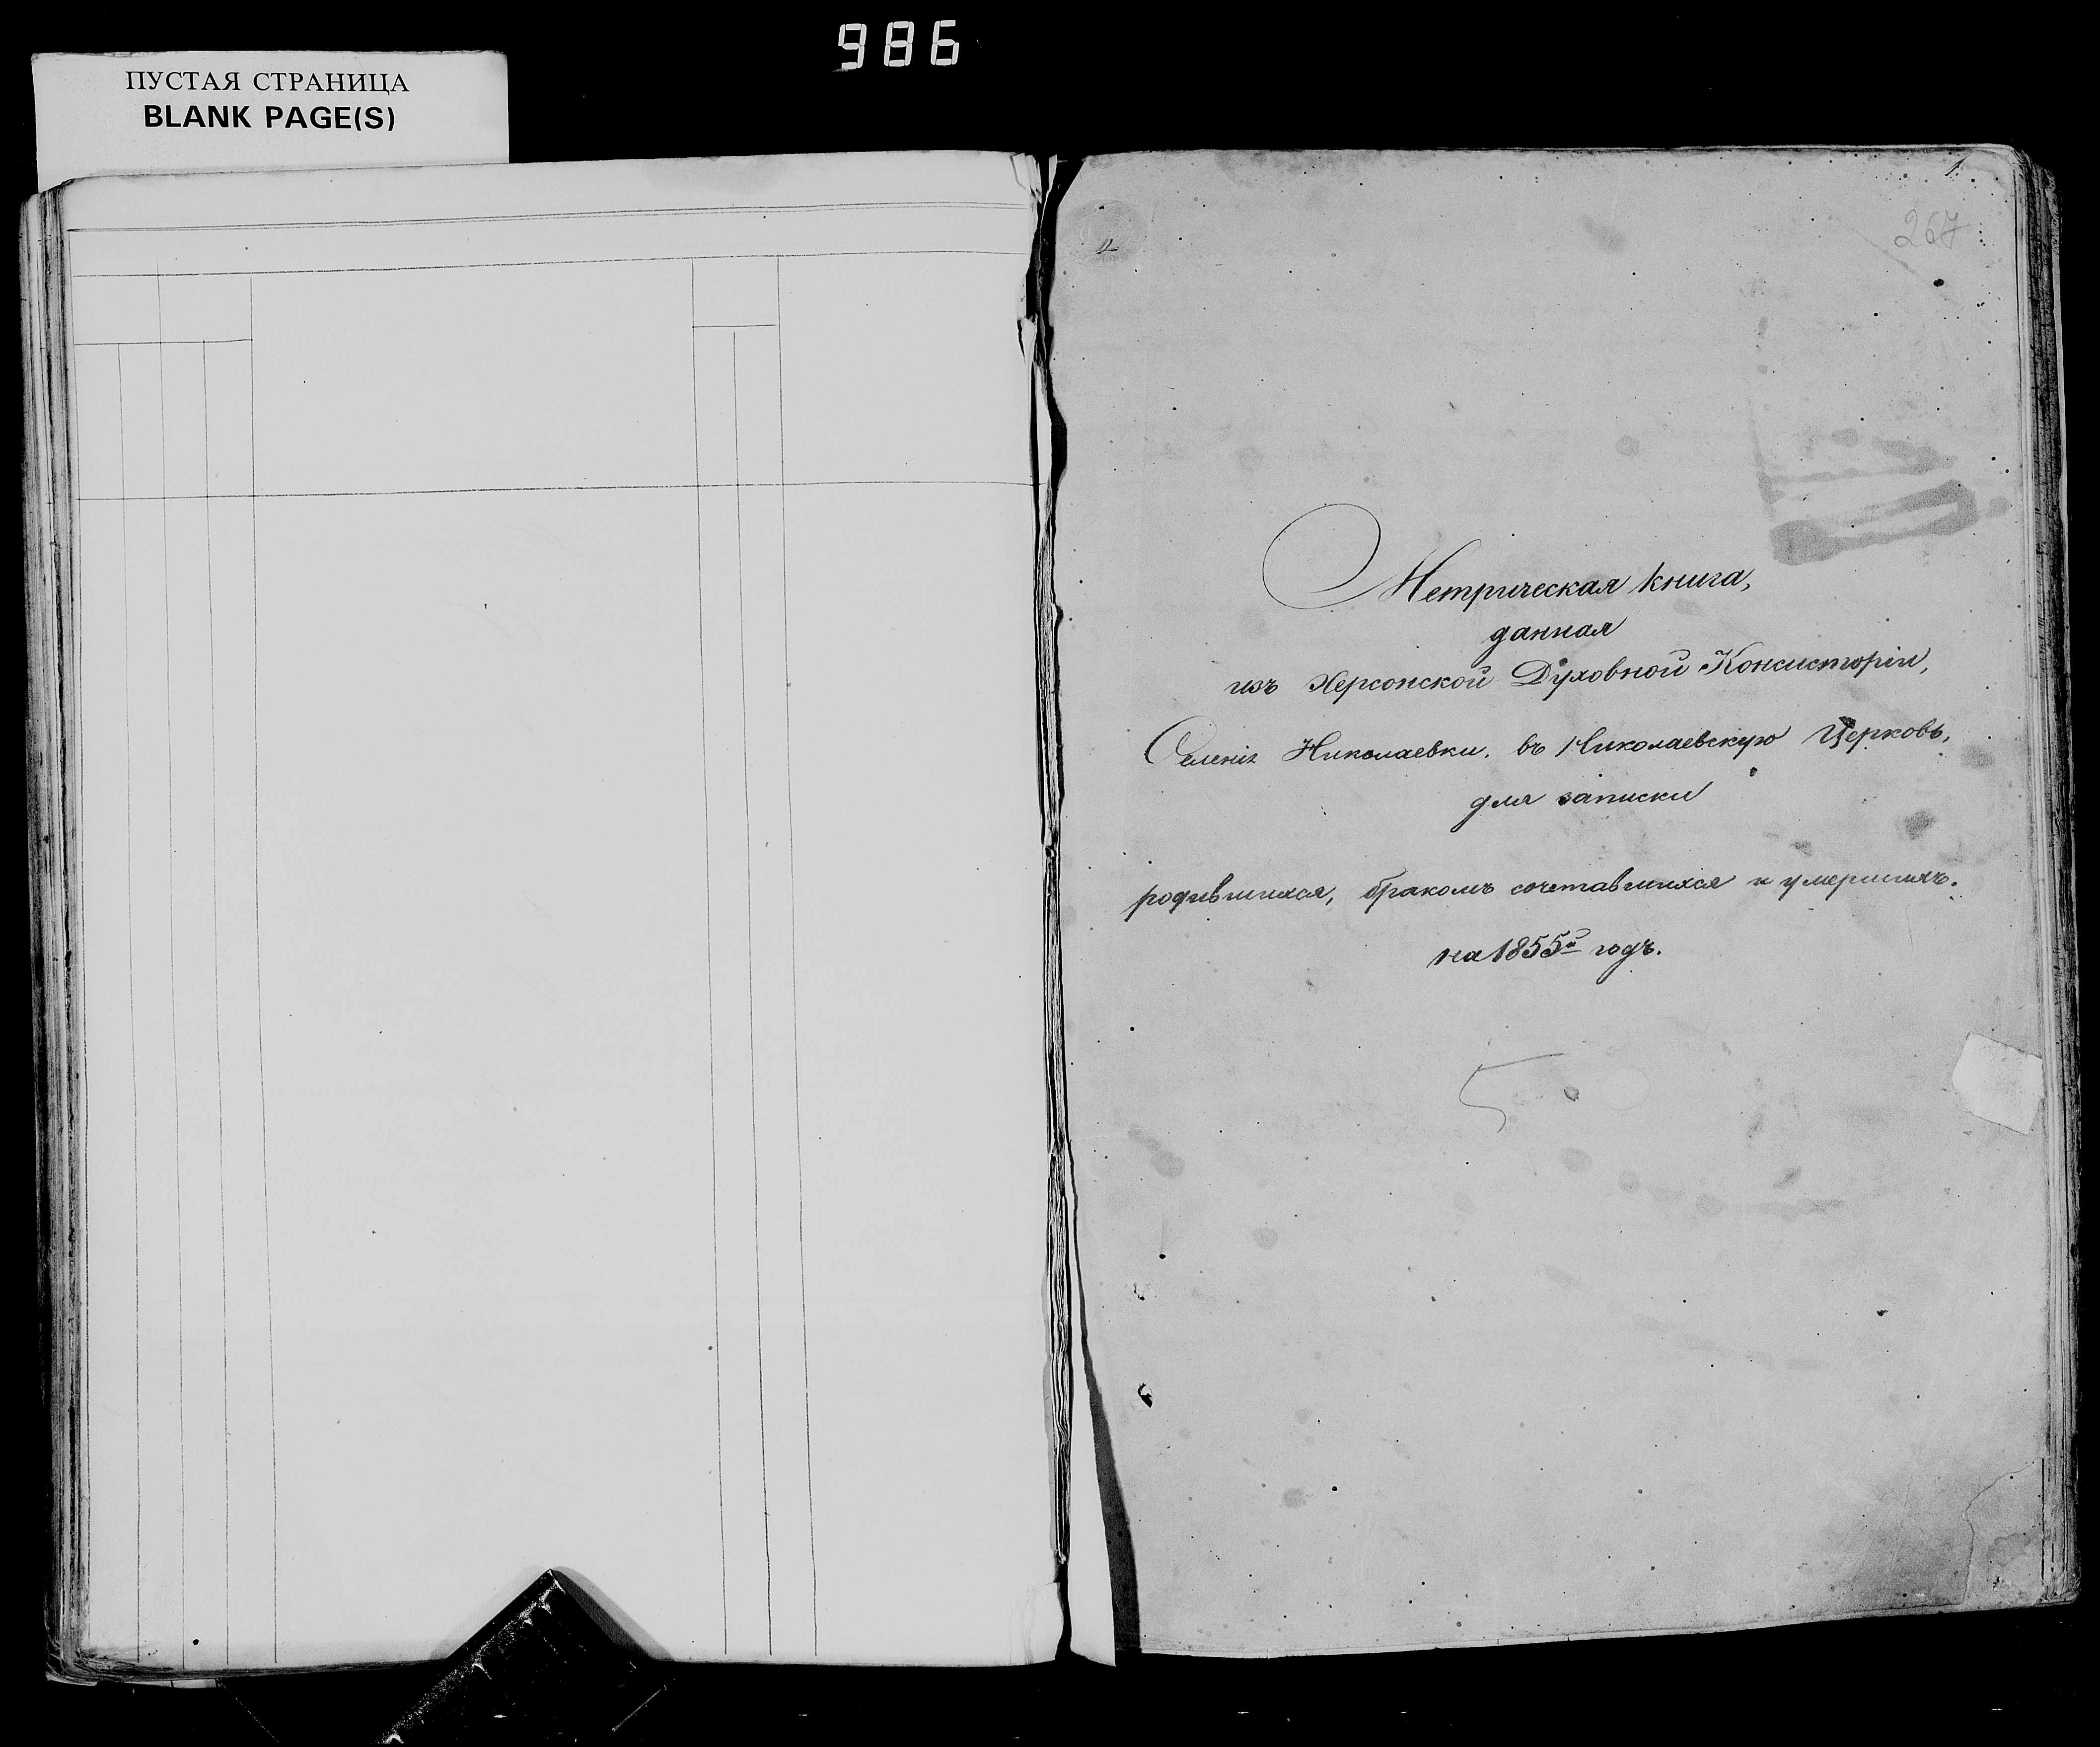 986
ПУСТАЯ СТРАНИЦА
BLANK PAGE(S)
1.
267
Метрическая книга,
данная
изъ Херсонской Духовной Консисторіи,
Селенія Николаевки, въ Николаевскую Церковь,
для записки
родившихся, бракомъ сочетавшихся и умершихъ.
на 1855й годъ.
5